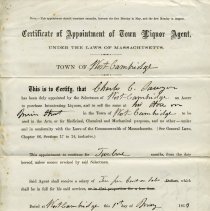 NOTE.—This appointment should terminate annually, between the first Monday in May, and the first Monday in August.
Certificate of Appointment of Town Liquor Agent,
UNDER THE LAWS OF MASSACHUSETTS.
TOWN OF West Cambridge
This is to Certify, that Charles C. Sawyer
has been duly appointed by the Selectmen of West Cambridge an AGENT
to purchase Intoxicating Liquors, and to sell the same at his store on
Main Street in the Town of West Cambridge to be
used in the Arts, or for Medicinal, Chemical and Mechanical purposes, and no other
under and in conformity to the Laws of the Commonwealth of Massachusetts. [See General Laws,
Chapter 86, Sections 17 to 24, inclusive.]
This appointment to continue for Twelve months, from the date
hereof, unless sooner revoked by said Selectmen.
Said Agent shall receive a salary of
shall be in full for his said services
Dated at West Cambridge this 1st day of May